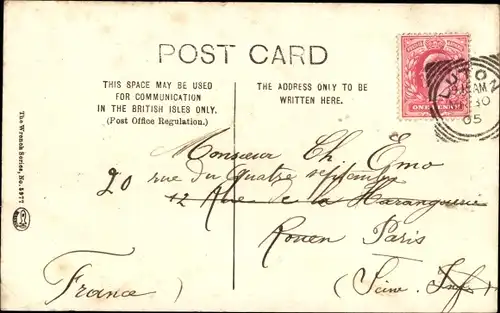 POST CARD
THIS SPACE MAY BE USED
FOR COMMUNICATION
IN THE BRITISH ISLES ONLY.
(Post Office Regulation.)
THE ADDRESS ONLY TO BE
WRITTEN HERE.
ONE PENNY
LUTON
AM
30
05
The Wrench Series, No.
Monsieur Ch Emo
20 rue du Quatre septembre
12 Rue de la Haranguerie
Rouen Paris
(Seine Inf)
France)